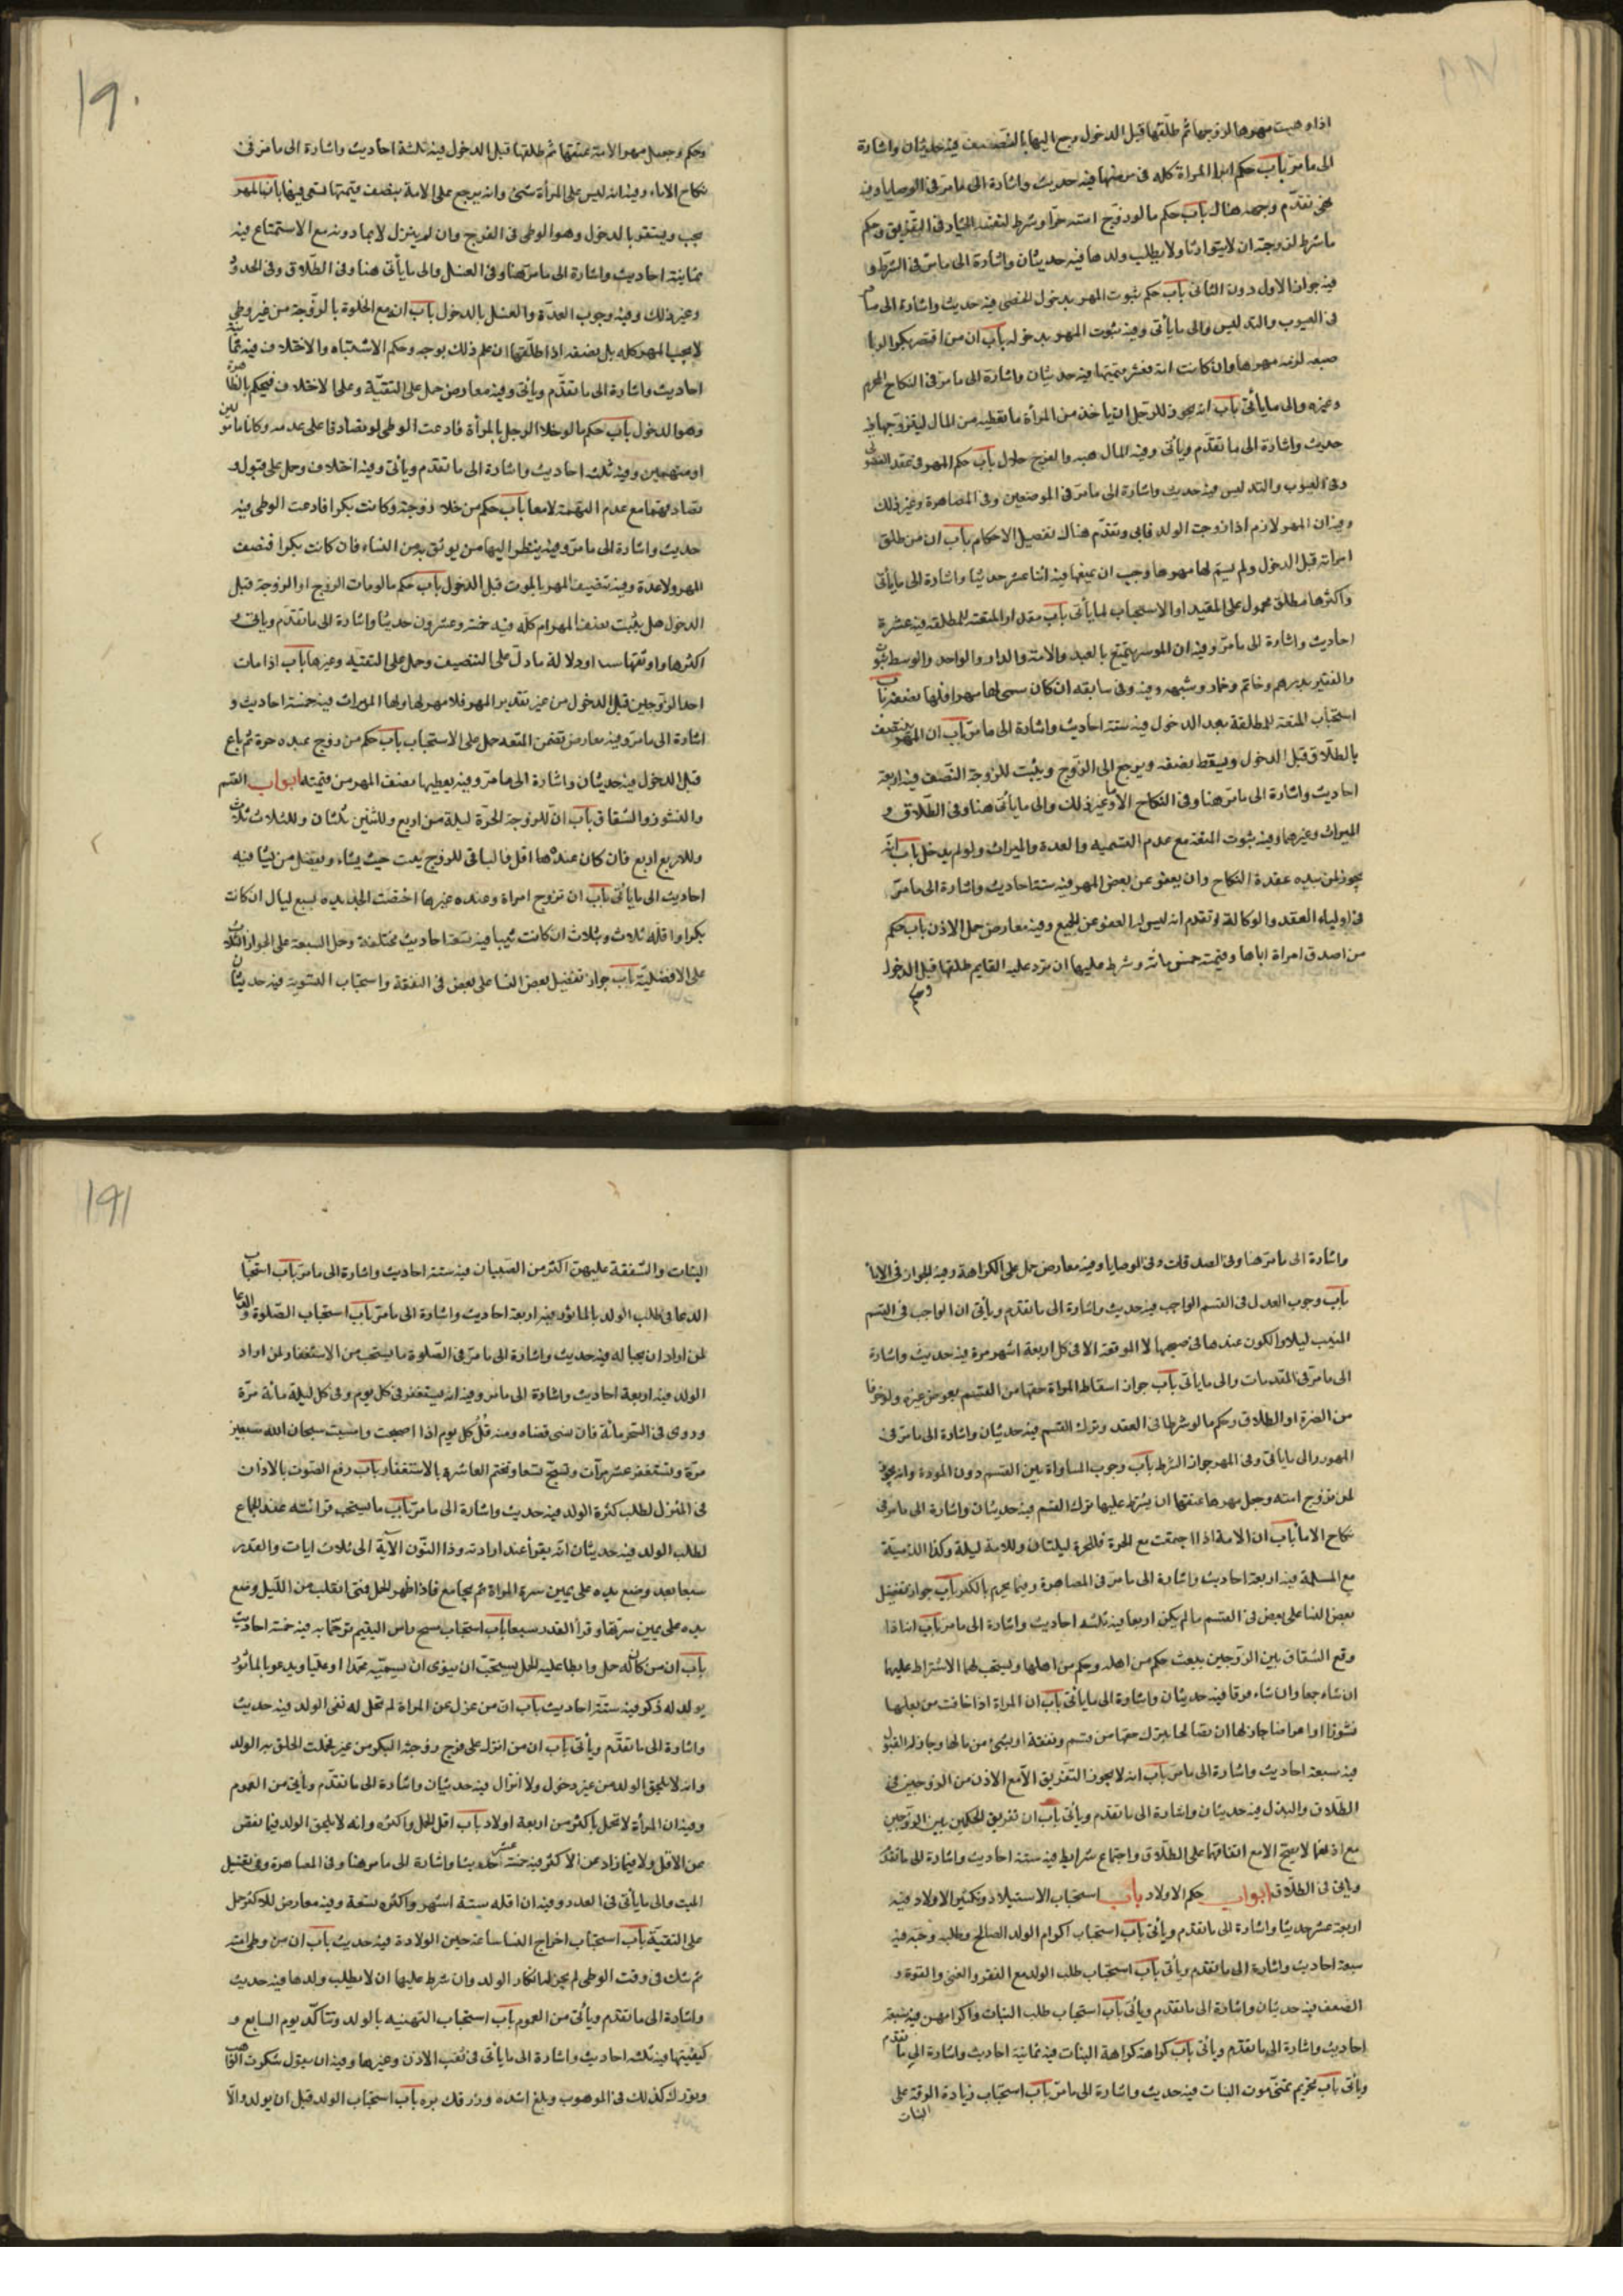 اذا وهبت مهرها لزوجها ثم طلقها قبل الدخول رجع اليها بالنصف فيه حديثان واشارة
الى ما مر باب حكم ابرا المراة كله في مرضها فيه حديث واشارة الى ما مر في الوصايا وفيه
تقدم وجهه هناك باب حكم ما لو زوج امته حرا وشرط لنفسه الخيار في التفريق وحكم
ما شرط لزوجته ان لا يتوارثا ولا يطلب ولدها فيه حديثان واشارة الى ما مر في الشرط و
فيه جواز الاول دون الثاني باب حكم ثبوت المهر بدخول الخصي فيه حديث واشارة الى ما مر
في العيوب والتدليس والى ما يأتي وفيه ثبوت المهر بدخوله باب ان من افتض بكرا ولو با
صبعه لزمه مهرها وان كانت امة فعشر قيمتها فيه حديثان واشارة الى ما مر في النكاح المحرم
وغيره والى ما يأتي باب انه يجوز للرجل ان ياخذ من المرأة ما تعطيه من المال ليتزوجها فيه
حديث واشارة الى ما تقدم ويأتي وفيه المال هبه والفرج حلال باب حكم المهر في عقد الفضولي
وفي العيوب والتدليس فيه حديث واشارة الى ما مر في الموضعين وفي المصاهرة وغير ذلك
وفيه ان المهر لازم اذا زوجت الولد فابى وتقدم هناك تفصيل الاحكام باب ان من طلق
امراته قبل الدخول ولم يسم لها مهرها وجب ان يمتعها فيه اثنا عشر حديثا واشارة الى ما يأتي
واكثرها مطلق محمول على المقيد او الاستحباب لما يأتي باب مقدار المتعة للمطلقه فيه عشرة
احاديث واشارة الى ما مر وفيه ان الموسر يمتع بالعبد والامة والدار والواحد والوسط بثوب
والفقير بدرهم وخاتم وخمار وشبهه وفيه وفي سابقه ان كان سمى لها مهرا فلها نصفه باب
استحباب المتعة للمطلقة بعد الدخول فيه ستة احاديث واشارة الى ما مر باب ان المهر ينتصف
بالطلاق قبل الدخول ويسقط نصفه ويرجع الى الزوج ويثبت للزوجة النصف فيه اربعة
احاديث واشارة الى ما مر هنا وفي النكاح الاماء وغير ذلك والى ما يأتي هنا وفي الطلاق و
الميراث وغيرهما وفيه ثبوت المتعة مع عدم التسميه والعدة والميراث ولو لم يدخل باب انه
يجوز لمن بيده عقدة النكاح وان يعفو عن بعض المهر فيه ستة احاديث واشارة الى ما مر
في اولياء العقد والوكالة وتقدم انه ليس له العفو عن الجميع وفيه معارض حمل الاذن باب حكم
من اصدق امراة اباها وقيمته خمس مائة وشرط عليها ان ترد عليه الف درهم ثم طلقها قبل الدخول
وحكم
١٩٠
وحكم وجعل مهر الامة عتقها ثم طلقها قبل الدخول فيه ثلثة احاديث واشارة الى ما مر في
نكاح الاماء وفيه انه ليس على المرأة شيء وانه يرجع على الامة بنصف قيمتها تسعى فيها باب المهر
يجب ويستقر بالدخول وهو الوطي في الفرج وان لم ينزل لا بما دونه مع الاستمتاع فيه
ثمانية احاديث واشارة الى ما مر هنا وفي الغسل والى ما يأتي هنا وفي الطلاق وفي الحدود
وغير ذلك وفيه وجوب العدة والغسل بالدخول باب ان مع الخلوة بالزوجة من غير وطي
لا يجب المهر كله بل نصفه اذا طلقها ان علم ذلك بوجه وحكم الاشتباه والاختلاف فيه ثمانية
احاديث واشارة الى ما تقدم ويأتي وفيه معارض حمل على التقية وعلى الاختلاف فيحكم بالظاهر
وهو الدخول باب حكم ما لو خلا الرجل بالمرأة فادعت الوطي او تصادقا على عدمه وكانا مامونين
او متهمين وفيه ثلثه احاديث واشارة الى ما تقدم ويأتي وفيه اختلاف وحمل على قبول
تصادقهما مع عدم التهمة لا معها باب حكم من خلا بزوجته وكانت بكرا فادعت الوطي فيه
حديث واشارة الى ما مر وفيه ينظر اليها من يوثق به من النساء فان كانت بكرا فنصف
المهر ولا عدة وفيه تنصيف المهر بالموت قبل الدخول باب حكم ما لو مات الزوج او الزوجة قبل
الدخول هل يثبت نصف المهر ام كله فيه خمسة وعشرون حديثا واشارة الى ما تقدم وياتي و
اكثرها واوثقها سندا ودلالة ما دل على التنصيف وحمل على التقية وغيرها باب اذا مات
احد الزوجين قبل الدخول من غير تقدير المهر فلا مهر لها ولها الميراث فيه خمسة احاديث و
اشارة الى ما مر وفيه معارض تضمن المتعه حمل على الاستحباب باب حكم من زوج عبده حرة ثم باع
قبل الدخول فيه حديثان واشارة الى ما مر وفيه يعطيها نصف المهر من قيمته ابواب القسم
والنشوز والشقاق باب ان للزوجة الحرة ليلة من اربع وللثنتين ثلثان وللثلاث ثلاث
وللاربع اربع فان كان عنده اقل فالباقي للزوج يبت حيث يشاء ويفضل من يشا فيه
احاديث الى ما يأتي باب ان تزوج امراة وعنده غيرها اختصت الجديده بسبع ليال ان كانت
بكرا واقله ثلاث وبثلاث ان كانت ثيبا فيه تسعة احاديث مختلفة وحمل السبعة على الجواز والثلاث
على الافضلية باب جواز تفضيل بعض النسا على بعض في النفقة واستحباب التسوية فيه حديثان
واشارة الى ما مر هنا وفي الصدقات وفي الوصايا وفيه معارض حمل على الكراهة وفيه الجواز في الاماء
باب وجوب العدل في القسم الواجب فيه حديث واشارة الى ما تقدم ويأتي ان الواجب في القسم
المبيت ليلا والكون عندها في صبيحتها لا المواقعة الا في كل اربعة اشهر مرة فيه حديث واشارة
الى ما مر في المقدمات والى ما ياتي باب جواز اسقاط المراة حقها من القسم بعوض وغيره ولو خوفا
من الضرة او الطلاق وحكم ما لو شرطا في العقد وترك القسم فيه حديثان واشارة الى ما مر في
المهور والى ما يأتي وفي المهر جواز الشرط باب وجوب المساواة بين القسم دون المودة وانه يجوز
لمن تزوج امته وجعل مهرها عتقها ان يشترط عليها ترك القسم فيه حديثان واشارة الى ما مر في
نكاح الاماء باب ان الامة اذا اجتمعت مع الحرة فللحرة ليلتان وللامة ليلة وكذا الذمية
مع المسلمة فيه اربعة احاديث واشارة الى ما مر في المصاهرة وفيما يحرم بالكفر باب جواز تفضيل
بعض النسا على بعض في القسم ما لم يكن اربعا فيه ثلثه احاديث واشارة الى ما مر باب انه اذا
وقع الشقاق بين الزوجين يبعث حكم من اهله وحكم من اهلها ويستحب لهما الاشتراط عليهما
ان شاء جمعا وان شاء فرقا فيه حديثان واشارة الى ما يأتي باب ان المراة اذا خافت من بعلها
نشوزا او اعراضا جاز لها ان تصالحا بترك حقها من قسم ونفقة او بشيء من مالها وجاز له القبول
فيه سبعة احاديث واشارة الى ما مر باب انه لا يجوز التفريق الا مع الاذن من الزوجين في
الطلاق والبذل فيه حديثان واشارة الى ما تقدم ويأتي باب ان تفريق الحكمين بين الزوجين
مع اذنهما لا يصح الا مع اتفاقهما على الطلاق واجتماع شرايط فيه ستة احاديث واشارة الى ما تقدم
وياتي في الطلاق ابواب حكم الاولاد باب استحباب الاستيلاد وتكثير الاولاد فيه
اربعة عشر حديثا واشارة الى ما تقدم ويأتي باب استحباب اكرام الولد الصالح وطلبه وحبه فيه
سبعة احاديث واشارة الى ما تقدم ويأتي باب استحباب طلب الولد مع الفقر والغنى والقوة و
الضعف فيه حديثان واشارة الى ما تقدم ويأتي باب استحباب طلب البنات واكرامهن فيه سبعة
احاديث واشارة الى ما تقدم وياتي باب كراهة كراهة البنات فيه ثمانية احاديث واشارة الى ما تقدم
ويأتي باب تحريم تمني موت البنات فيه حديث واشارة الى ما مر باب استحباب زيادة الرقة على
البنات
١٩١
البنات والشفقة عليهن اكثر من الصبيان فيه ستة احاديث واشارة الى ما مر باب استحباب
الدعا في طلب الولد بالماثور فيه اربعة احاديث واشارة الى ما مر باب استحباب الصلوة والدعا
لمن اراد ان يحبا له فيه حديث واشارة الى ما مر في الصلوة ما يستحب من الاستغفار لمن اراد
الولد فيه اربعة احاديث واشارة الى ما مر وفيه انه يستغفر في كل يوم وفي كل ليلة مائة مرة
وروى في السحر مائة فان نسي قضاه ومنه قل كل يوم اذا اصبحت وامسيت سبحان الله سبعين
مرة وتستغفر عشر مرات وتسبح تسعا وتختم العاشرة بالاستغفار باب رفع الصوت بالاذان
في المنزل لطلب كثرة الولد فيه حديث واشارة الى ما مر باب ما يستحب قرائته عند الجماع
لطلب الولد فيه حديثان انه يقرأ عند ارادته وذا النون الآية الى ثلاث ايات والقدر
سبعا بعد وضع يده على يمين سرة المراة ثم يجامع فاذا ظهر الحمل فمتى انقلب من الليل وضع
يده على يمين سرتها وقرأ القدر سبعا باب استحباب مسح راس اليتيم ترحما به فيه خمسة احاديث
باب ان من كان له حمل وابطا عليه الحمل يستحب ان ينوي ان يسميه محمدا او عليا ويدعو بالماثور
يولد له ذكر فيه ستة احاديث باب ان من عزل عن المراة لم تحل له نفي الولد فيه حديث
واشارة الى ما تقدم ويأتي باب ان من انزل على فرج زوجته البكر من غير فحملت الحق به الولد
وانه لا يلحق الولد من غير دخول ولا انزال فيه حديثان واشارة الى ما تقدم ويأتي من العموم
وفيه ان المرأة لا تحمل باكثر من اربعة اولاد باب اقل الحمل واكثره وانه لا يلحق الولد فيما نقص
عن الاقل ولا فيما زاد عن الاكثر فيه خمسة عشر حديثا واشارة الى ما مر هنا وفي المصاهرة وفي تغسيل
الميت والى ما يأتي في العدد وفيه ان اقله ستة اشهر واكثره تسعة وفيه معارض للاكثر حمل
على التقية باب استحباب اخراج النسا ساعة حين الولادة فيه حديث باب ان من وطى امته
ثم شك في وقت الوطي لم يجز له انكار الولد وان شرط عليها ان لا يطلب ولدها فيه حديث
واشارة الى ما تقدم ويأتي من العموم باب استحباب التهنيه بالولد وتتاكد يوم السابع و
كيفيتها فيه ثلثه احاديث واشارة الى ما يأتي في ثقب الاذن وغيرها وفيه ان يقول شكرت الواهب
وبورك لك في الموهوب وبلغ اشده ورزقك بره باب استحباب الولد قبل ان يولد والا